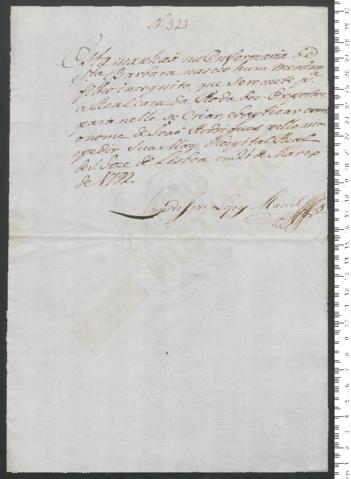 N. 323
Esta manhaã na Enfermaria de
Sta. Barbara nasceo hum menino
filho incognito, que se remete pa.
a Real Caza da Roda dos Expostos
para nella se Criar, e baptizar com
o nome de Joaõ Rodrigues pello asim
pedir sua May. Hospital Real
de S. Joze de Lisboa em 21 de Março
de 1792.
Lopez Maciel